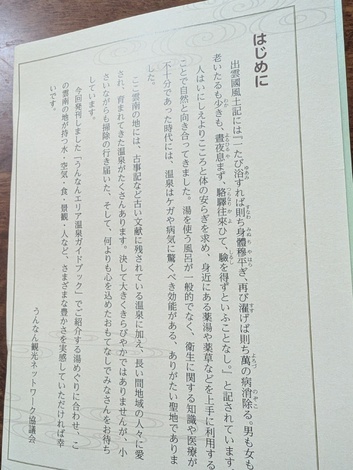 はじめに
出雲國風土記には『一たび浴すれば則ち身體穆平ぎ、再び濯げば則ち萬の病消除る。男も女も
老いたるも少きも、晝夜息まず、駱驛往來ひて、驗を得ずといふことなし。』と記されています。
人はいにしえよりこころと体の安らぎを求め、身近にある薬湯や薬草などを上手に利用する
ことで自然と向き合ってきました。湯を使う風呂が一般的でなく、衛生に関する知識や医療が
不十分であった時代には、温泉はケガや病気に驚くべき効能がある、ありがたい聖地でありま
した。
ここ雲南の地には、古事記など古い文献に残されている温泉に加え、長い間地域の人々に愛
され、育まれてきた温泉がたくさんあります。決して大きくきらびやかではありませんが、小
さいながらも掃除の行き届いた、そして、何よりも心を込めたおもてなしでみなさんをお待ち
しています。
今回発刊しました『うんなんエリア温泉ガイドブック』でご紹介する湯めぐりに合わせ、こ
の雲南の地が持つ水・空気・食・景観・人など、さまざまな豊かさを実感していただければ幸
いです。
うんなん観光ネットワーク協議会